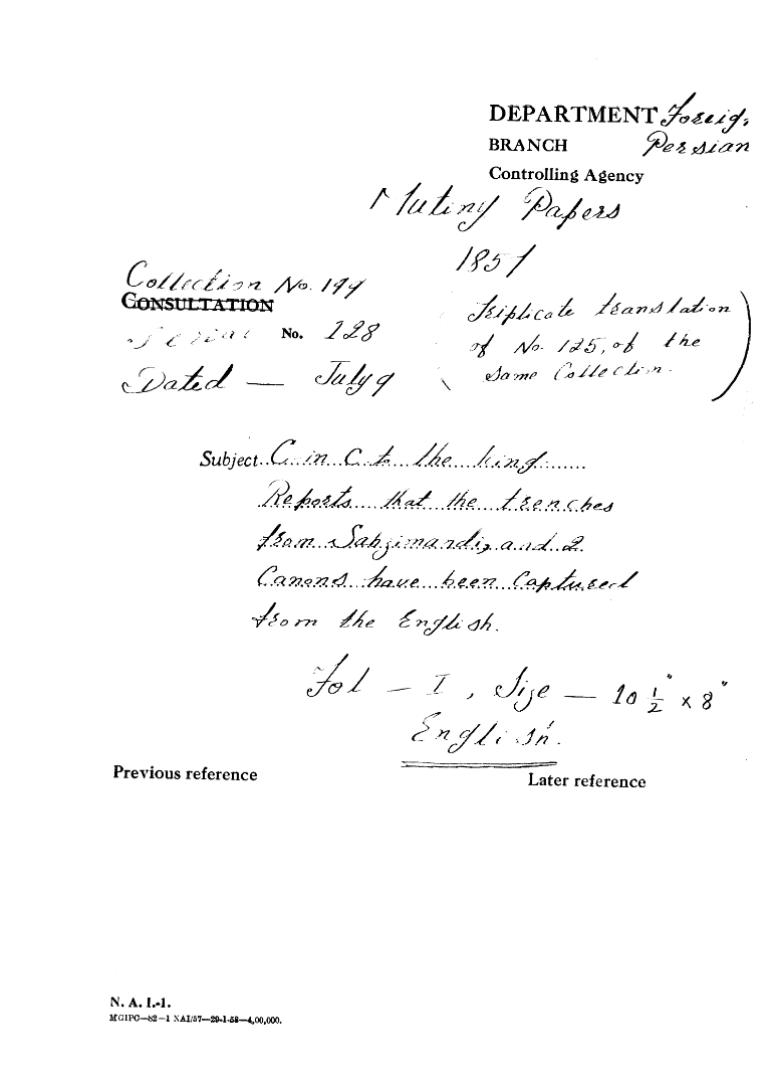 DEPARTMENT Foreig.
BRANCH Persian
Controlling Agency
Mutiny Papers
1857
Collection No. 199
CONSULTATION
Serial No. 128
Dated — July 9
(Triplicate translation
of No. 125, of the
same Collection.)
Subject C in C to the king
Reports that the trenches
from Sabzimandi, and 2
Canons have been Captured
from the English.
Fol — I, Size — 10 1/2" x 8"
English.
Previous reference
Later reference
N. A. I.-1.
MGIPC—82—1 NAI/57—29-1-58—4,00,000.